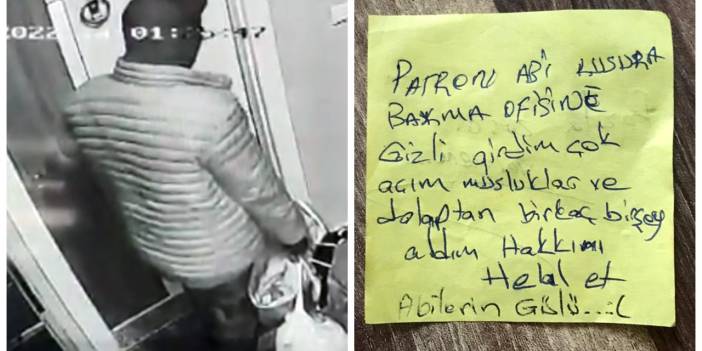 2022 01:
47
PATRON ABİ KUSURA
BAKMA OFİSİNE
Gizli girdim çok
açım musluklar ve
dolaptan birkaç birşey
aldım Hakkını
Helal et
Abilerin Gülü...:(